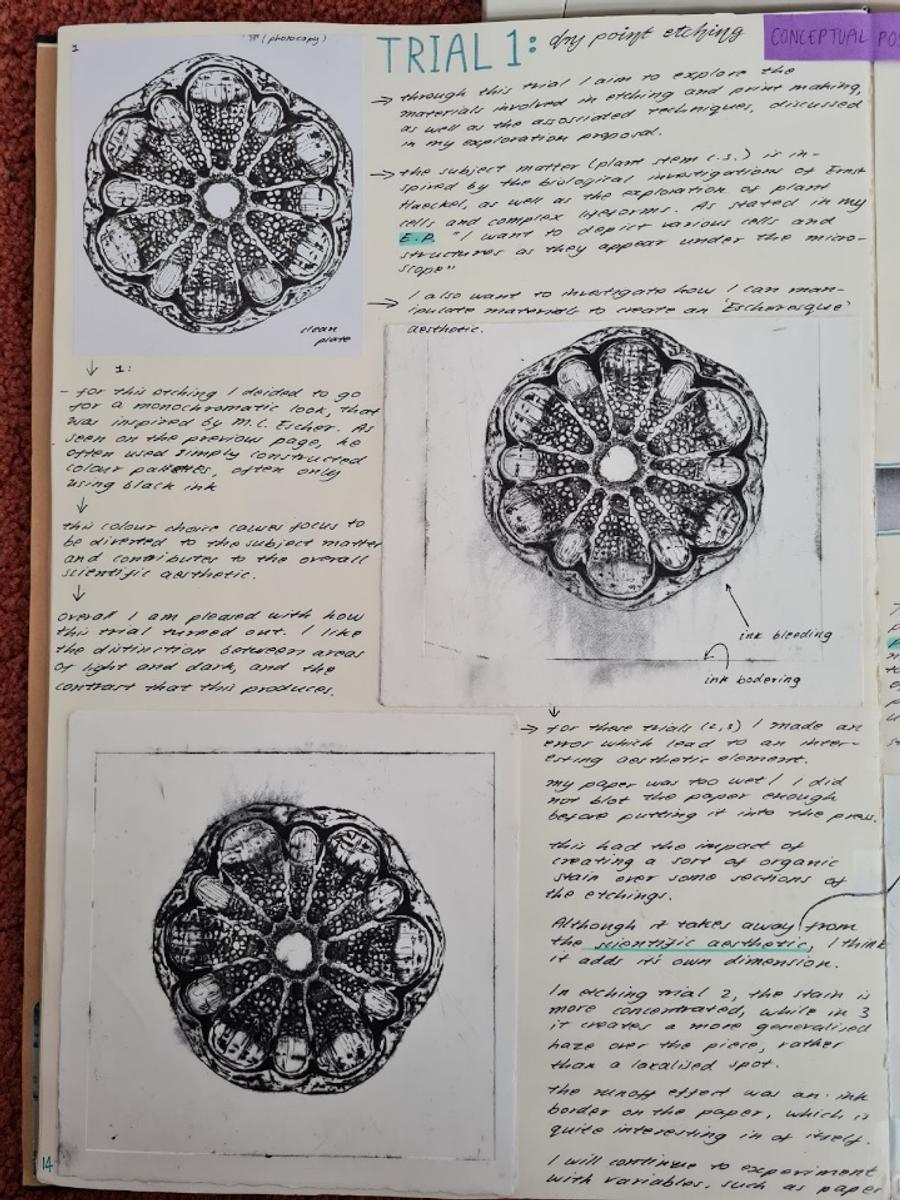 1
(photocopy)
TRIAL 1: dry point etching
CONCEPTUAL POS
→ through this trial I aim to explore the
materials involved in etching and print making,
as well as the associated techniques, discussed
in my exploration proposal.
→ the subject matter (plant stem c.s.) is in-
spired by the biological investigations of Ernst
Haeckel, as well as the exploration of plant
cells and complex lifeforms. As stated in my
E.P. "I want to depict various cells and
structures as they appear under the micro-
scope"
→ I also want to investigate how I can man-
ipulate materials to create an 'Escheresque'
aesthetic.
clean
plate
↓ 1:
- for this etching I deided to go
for a monochromatic look, that
was inspired by M.C. Escher. As
seen on the previous page, he
often used simply constructed
colour palettes, often only
using black ink
↓
this colour choice causes focus to
be diverted to the subject matter
and contributes to the overall
scientific aesthetic.
↓
Overall I am pleased with how
this trial turned out. I like
the distinction between areas
of light and dark, and the
contrast that this produces.
ink bleeding
ink bodering
↓
→ for these trials (2,3) I made an
error which lead to an inter-
esting aesthetic element.
my paper was too wet! I did
not blot the paper enough
before putting it into the press.
this had the impact of
creating a sort of organic
stain over some sections of
the etchings.
Although it takes away from
the scientific aesthetic, I think
it adds it's own dimension.
In etching trial 2, the stain is
more concentrated, while in 3
it creates a more generalised
haze over the piece, rather
than a loxalised spot.
the runoff effect was an ink
border on the paper, which is
quite interesting in of itself.
I will continue to experiment
with variables, such as paper
14